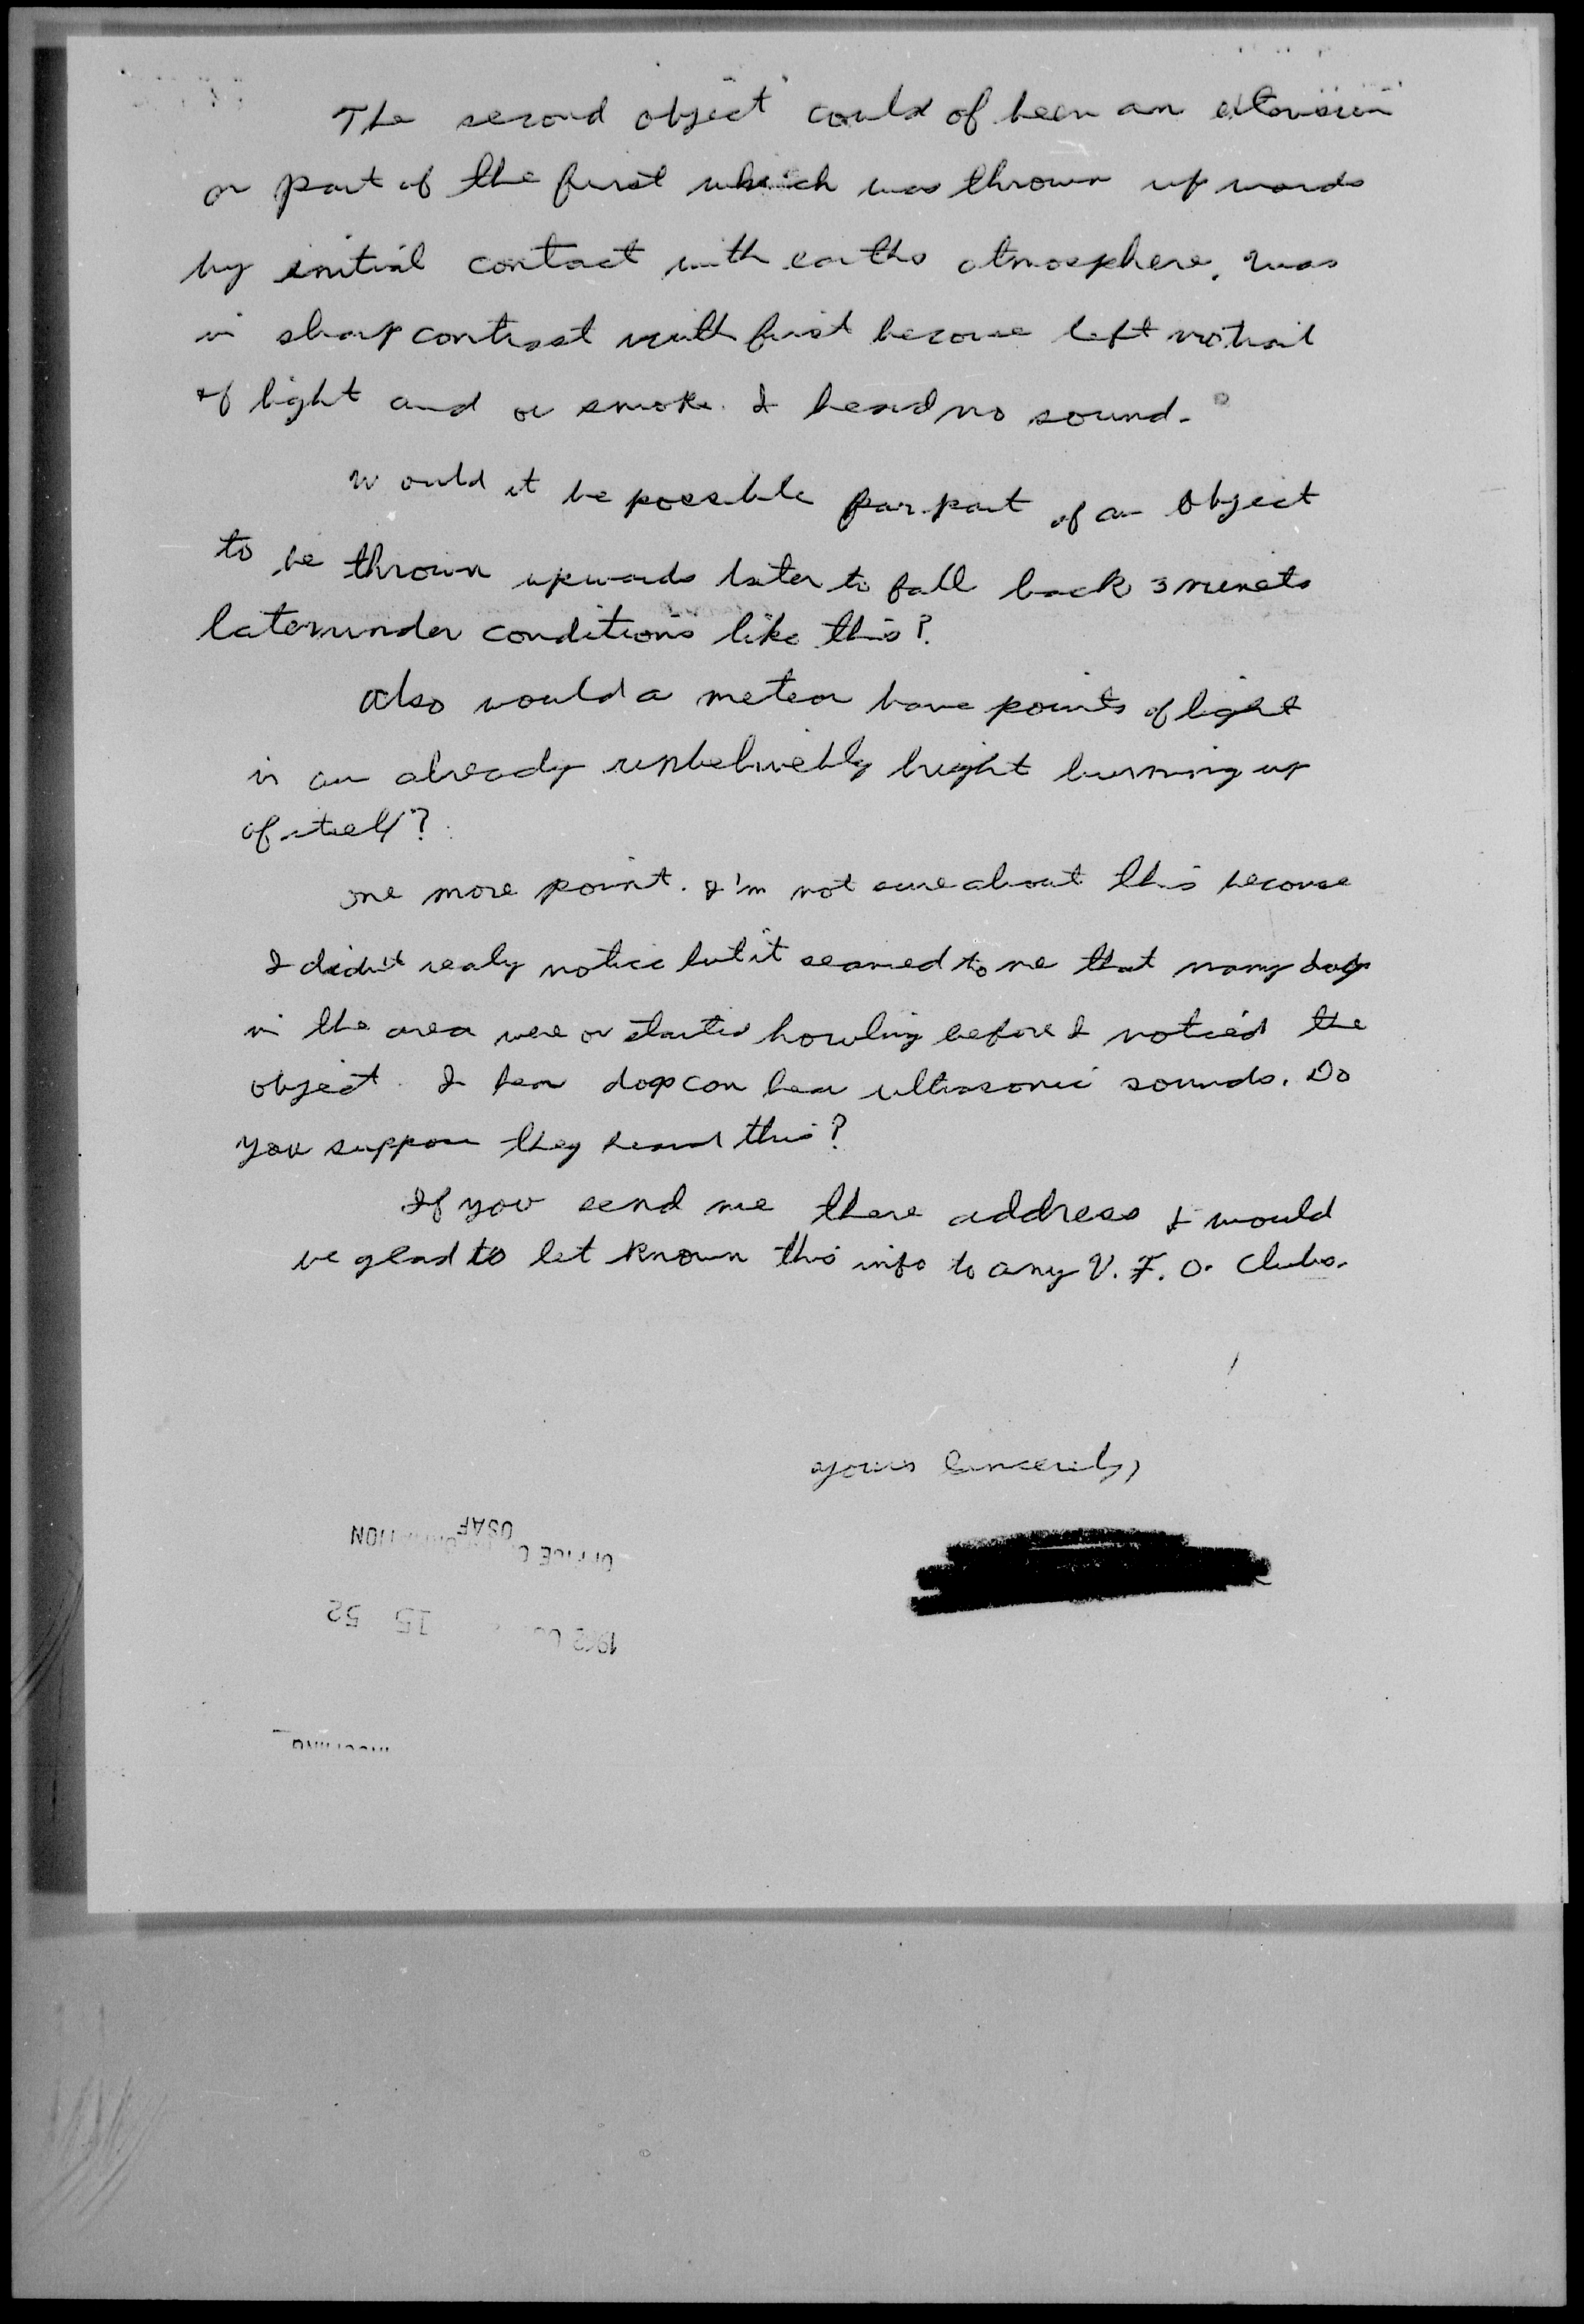 The second object could of been an extension
or part of the first which was thrown upwards
by initial contact with earths atmosphere. Was
in sharp contrast with first because left no trail
of light and or smoke. I heard no sound.
Would it be possible for part of an object
to be thrown upwards later to fall back 3 minets
later under conditions like this?
Also would a meteor have points of light
in an already unbeliveably bright burning up
of itself?
One more point. I'm not sure about this because
I didn't realy notice but it seamed to me that many dogs
in the area were or started howling before I noticed the
object. I hear dogs can hear ultrasonic sounds. Do
you suppose they heard this?
If you send me there address I would
be glad to let known this info to any U.F.O. Clubs.
Yours Sincerely,
USAF
OFFICE
15 52